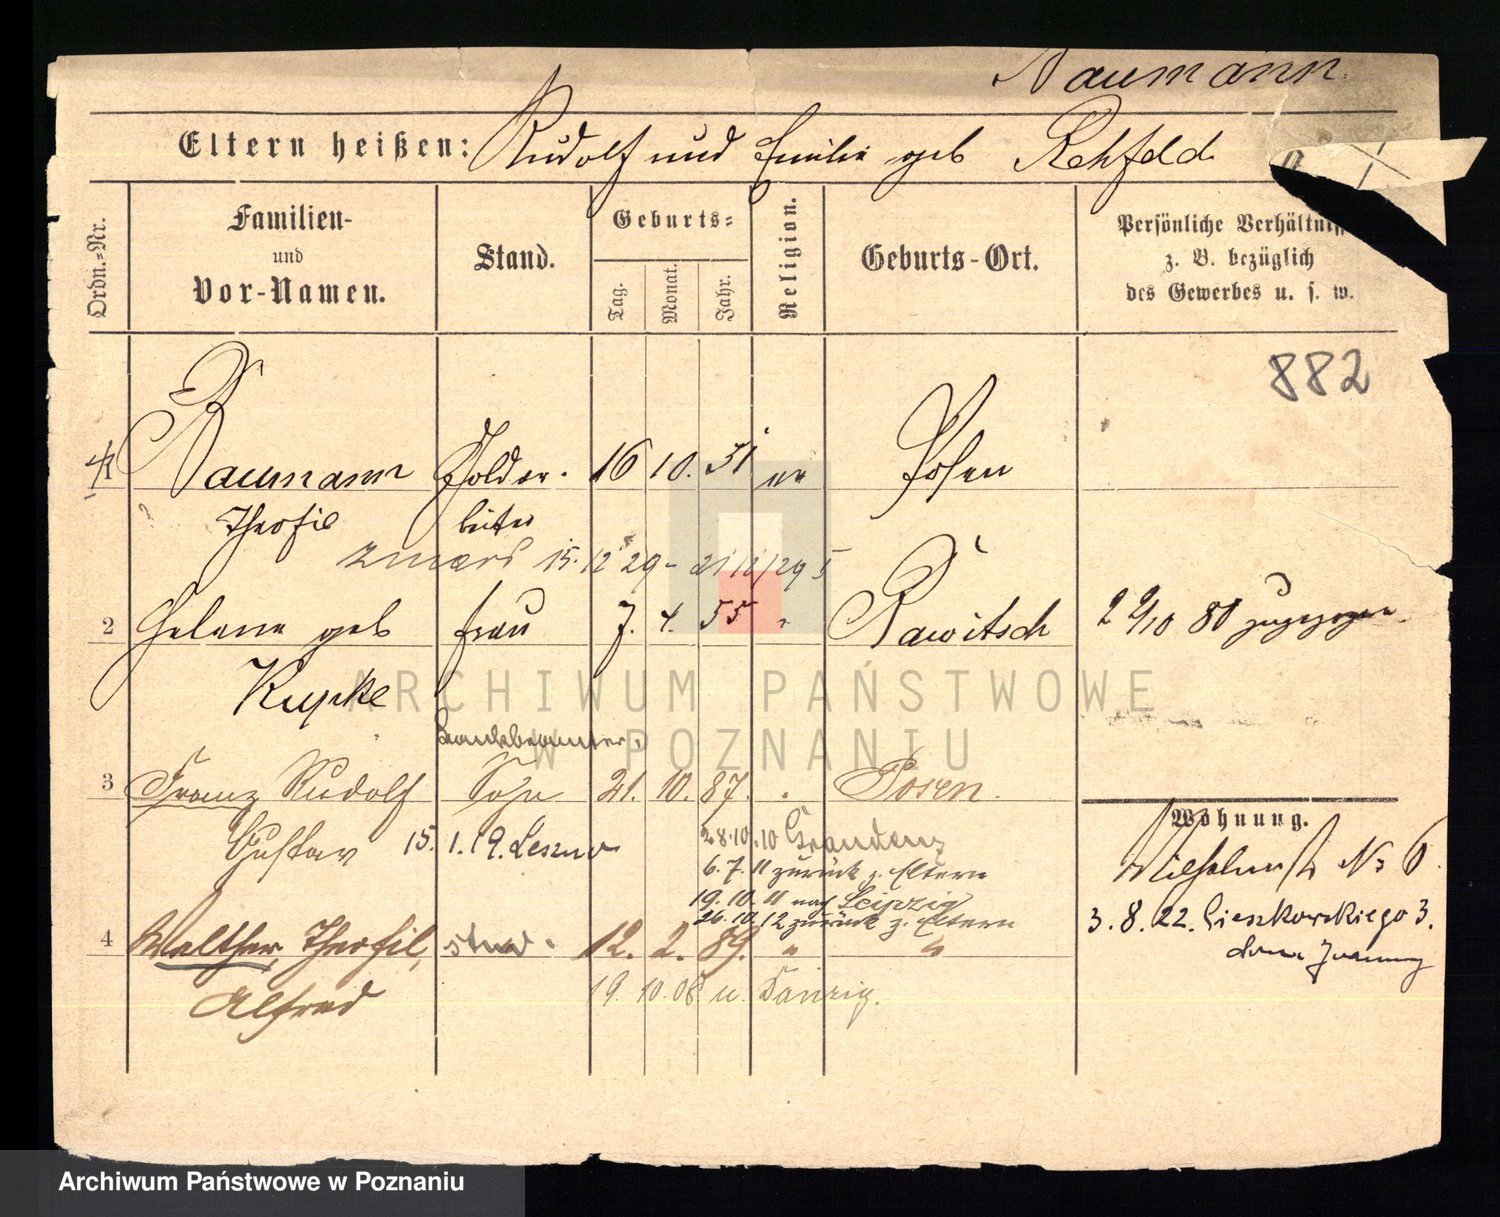 Naumann
Eltern heißen: Rudolf und Emilie geb Rehfeld
Ordn.-Nr.
Familien- und Vor-Namen.
Stand.
Geburts=
Tag.
Monat.
Jahr.
Religion.
Geburts-Ort.
Persönliche Verhältniss
z. B. bezüglich
des Gewerbes u. s. w.
882
1 Naumann 16 10. 51 ev Posen
Theofil
zmarł 15. 12 29 - 21/12/29
2 Helene geb Frau 7. 4. 55 " Rawitsch 2 9/10 80 zugezogen
Kupke
Bankbeamter
3 Franz Rudolf Sohn 21. 10. 87. " Posen.
Gustav 15. 1. 19. Leszno
28.10.10 Graudenz
6.7.11 zurück z. Eltern
19.10.11 nach Leipzig
26.10.12 zurück z. Eltern
4 Walther, Theofil, stud. 12. 2. 89. " "
Alfred
19. 10. 08 Danzig.
Wohnung.
Wilhelmstr No 6
3. 8. 22. Cieszkowskiego 3.
ARCHIWUM PAŃSTWOWE
W POZNANIU
Archiwum Państwowe w Poznaniu